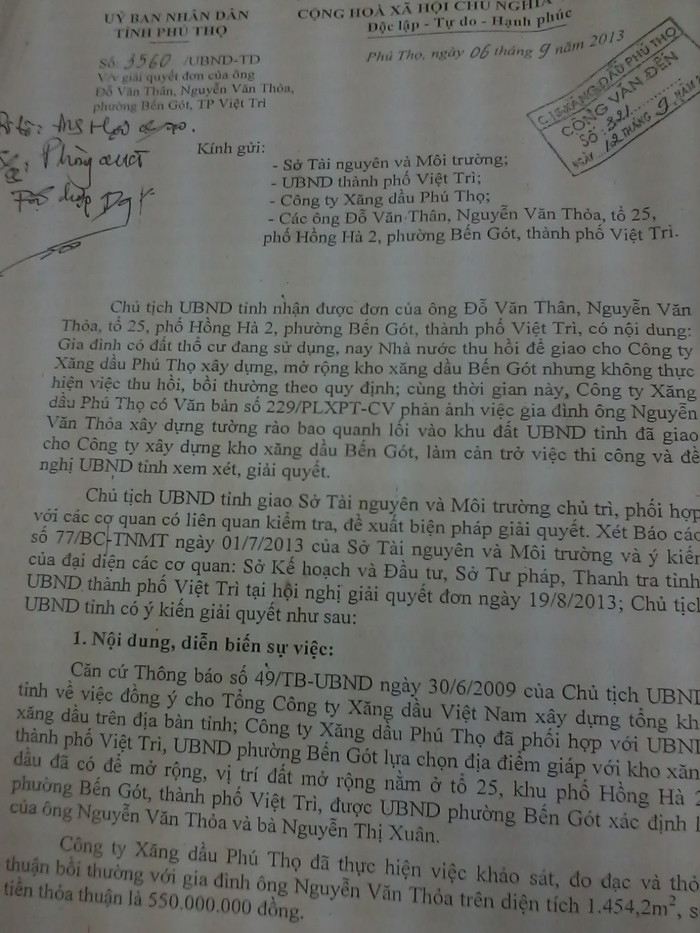 UỶ BAN NHÂN DÂN
TỈNH PHÚ THỌ
CỘNG HOÀ XÃ HỘI CHỦ NGHĨA
Độc lập - Tự do - Hạnh phúc
Số: 3560 /UBND-TD
V/v giải quyết đơn của ông
Đỗ Văn Thân, Nguyễn Văn Thỏa,
phường Bến Gót, TP Việt Trì
Phú Thọ, ngày 06 tháng 9 năm 2013
C.TY XĂNG DẦU PHÚ THỌ
CÔNG VĂN ĐẾN
SỐ: 321
NGÀY 12 THÁNG 9 NĂM
Phòng
Kính gửi:
- Sở Tài nguyên và Môi trường;
- UBND thành phố Việt Trì;
- Công ty Xăng dầu Phú Thọ;
- Các ông Đỗ Văn Thân, Nguyễn Văn Thỏa, tổ 25,
phố Hồng Hà 2, phường Bến Gót, thành phố Việt Trì.
Chủ tịch UBND tỉnh nhận được đơn của ông Đỗ Văn Thân, Nguyễn Văn
Thỏa, tổ 25, phố Hồng Hà 2, phường Bến Gót, thành phố Việt Trì, có nội dung:
Gia đình có đất thổ cư đang sử dụng, nay Nhà nước thu hồi để giao cho Công ty
Xăng dầu Phú Thọ xây dựng, mở rộng kho xăng dầu Bến Gót nhưng không thực
hiện việc thu hồi, bồi thường theo quy định; cùng thời gian này, Công ty Xăng
dầu Phú Thọ có Văn bản số 229/PLXPT-CV phản ảnh việc gia đình ông Nguyễn
Văn Thỏa xây dựng tường rào bao quanh lối vào khu đất UBND tỉnh đã giao
cho Công ty xây dựng kho xăng dầu Bến Gót, làm cản trở việc thi công và đề
nghị UBND tỉnh xem xét, giải quyết.
Chủ tịch UBND tỉnh giao Sở Tài nguyên và Môi trường chủ trì, phối hợp
với các cơ quan có liên quan kiểm tra, đề xuất biện pháp giải quyết. Xét Báo cáo
số 77/BC-TNMT ngày 01/7/2013 của Sở Tài nguyên và Môi trường và ý kiến
của đại diện các cơ quan: Sở Kế hoạch và Đầu tư, Sở Tư pháp, Thanh tra tỉnh
UBND thành phố Việt Trì tại hội nghị giải quyết đơn ngày 19/8/2013; Chủ tịch
UBND tỉnh có ý kiến giải quyết như sau:
1. Nội dung, diễn biến sự việc:
Căn cứ Thông báo số 49/TB-UBND ngày 30/6/2009 của Chủ tịch UBND
tỉnh về việc đồng ý cho Tổng Công ty Xăng dầu Việt Nam xây dựng tổng kh
xăng dầu trên địa bàn tỉnh; Công ty Xăng dầu Phú Thọ đã phối hợp với UBND
thành phố Việt Trì, UBND phường Bến Gót lựa chọn địa điểm giáp với kho xăn
dầu đã có để mở rộng, vị trí đất mở rộng nằm ở tổ 25, khu phố Hồng Hà 2
phường Bến Gót, thành phố Việt Trì, được UBND phường Bến Gót xác định l
của ông Nguyễn Văn Thỏa và bà Nguyễn Thị Xuân.
Công ty Xăng dầu Phú Thọ đã thực hiện việc khảo sát, đo đạc và thỏ
thuận bồi thường với gia đình ông Nguyễn Văn Thỏa trên diện tích 1.454,2m², s
tiền thỏa thuận là 550.000.000 đồng.